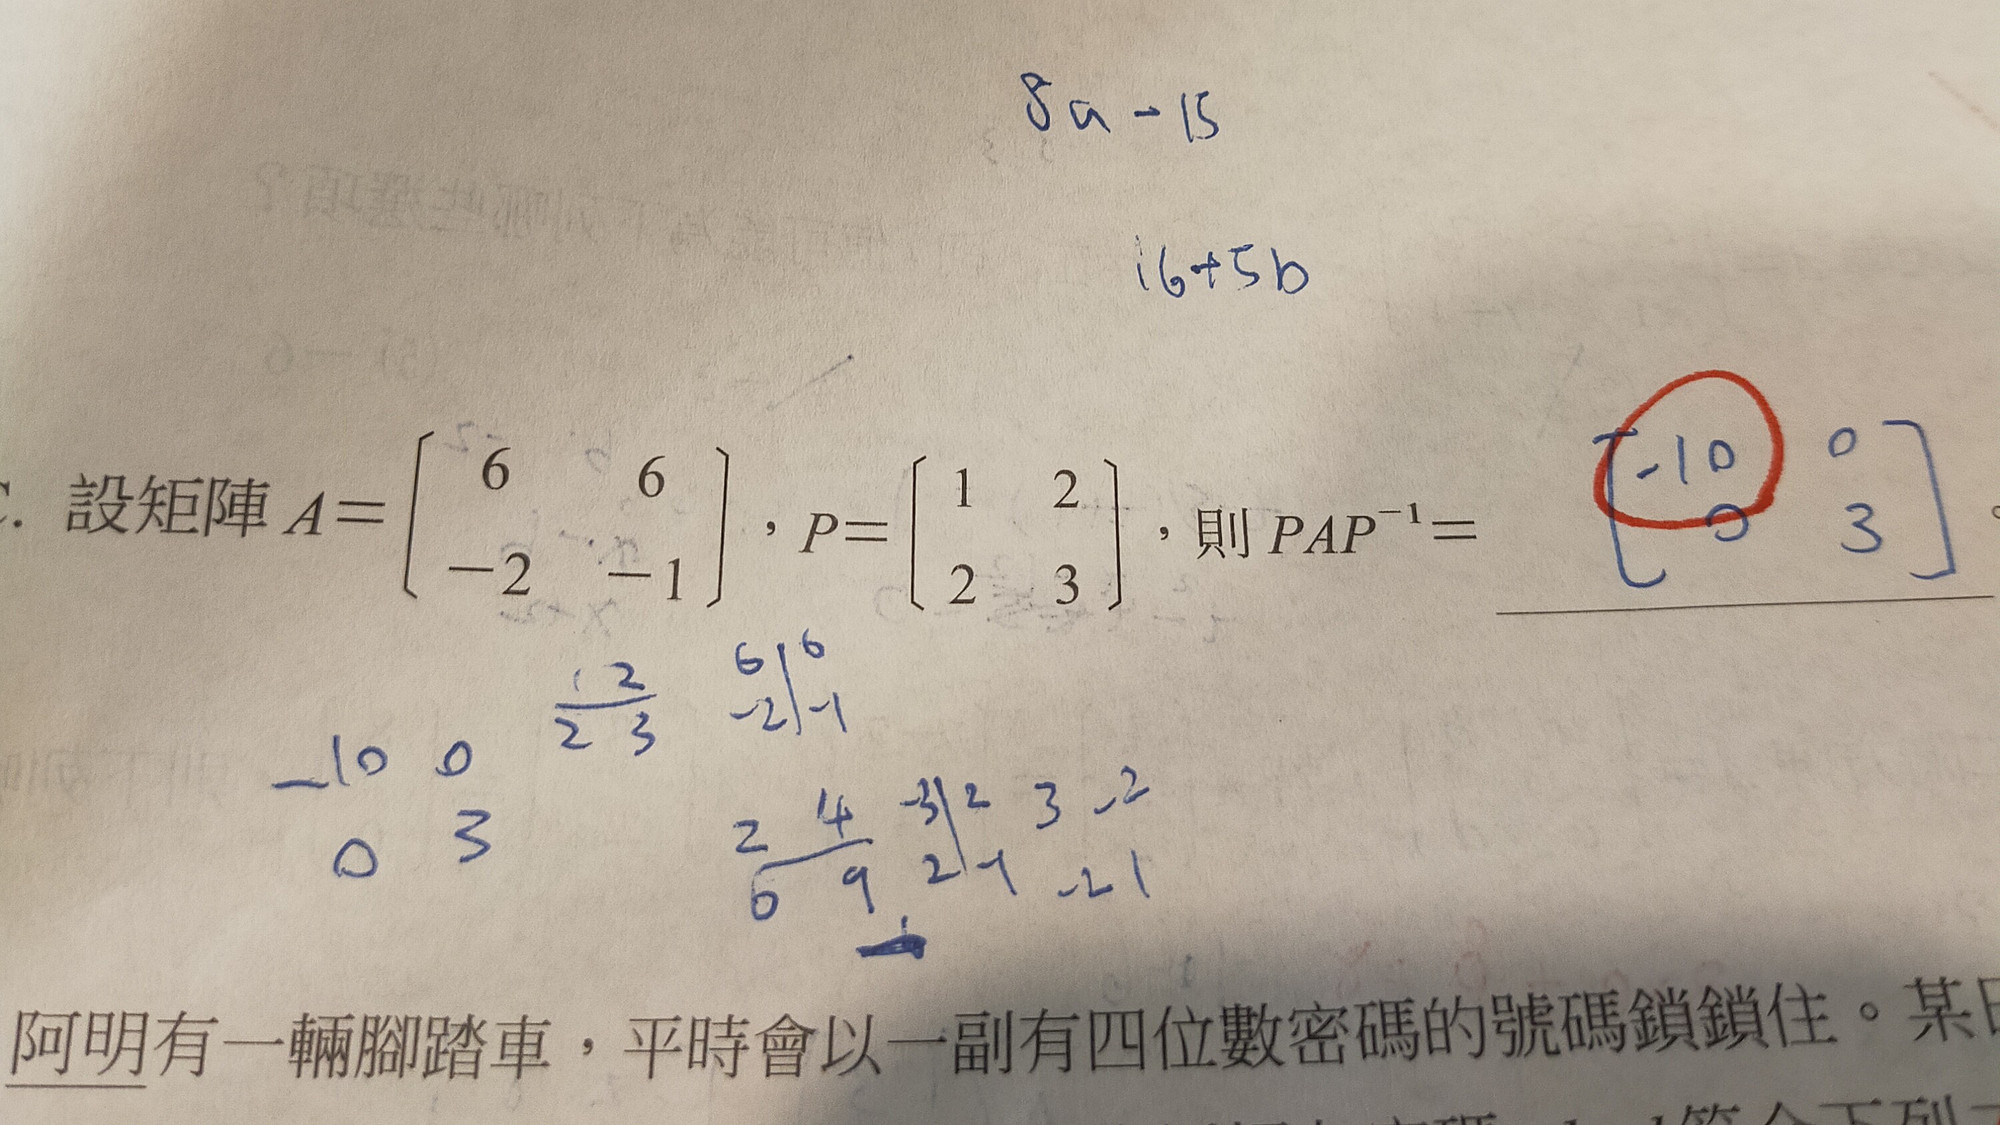 8a-15
16+5b
C. 設矩陣 A=[6 6 -2 -1],P=[1 2 2 3],則 PAP⁻¹= [-10 0 0 3]。
1 2 6 6
2 3 -2 -1
-10 0
0 3
2 4 -3 2 3 -2
6 9 2 -1 -2 1
阿明有一輛腳踏車,平時會以一副有四位數密碼的號碼鎖鎖住。某日